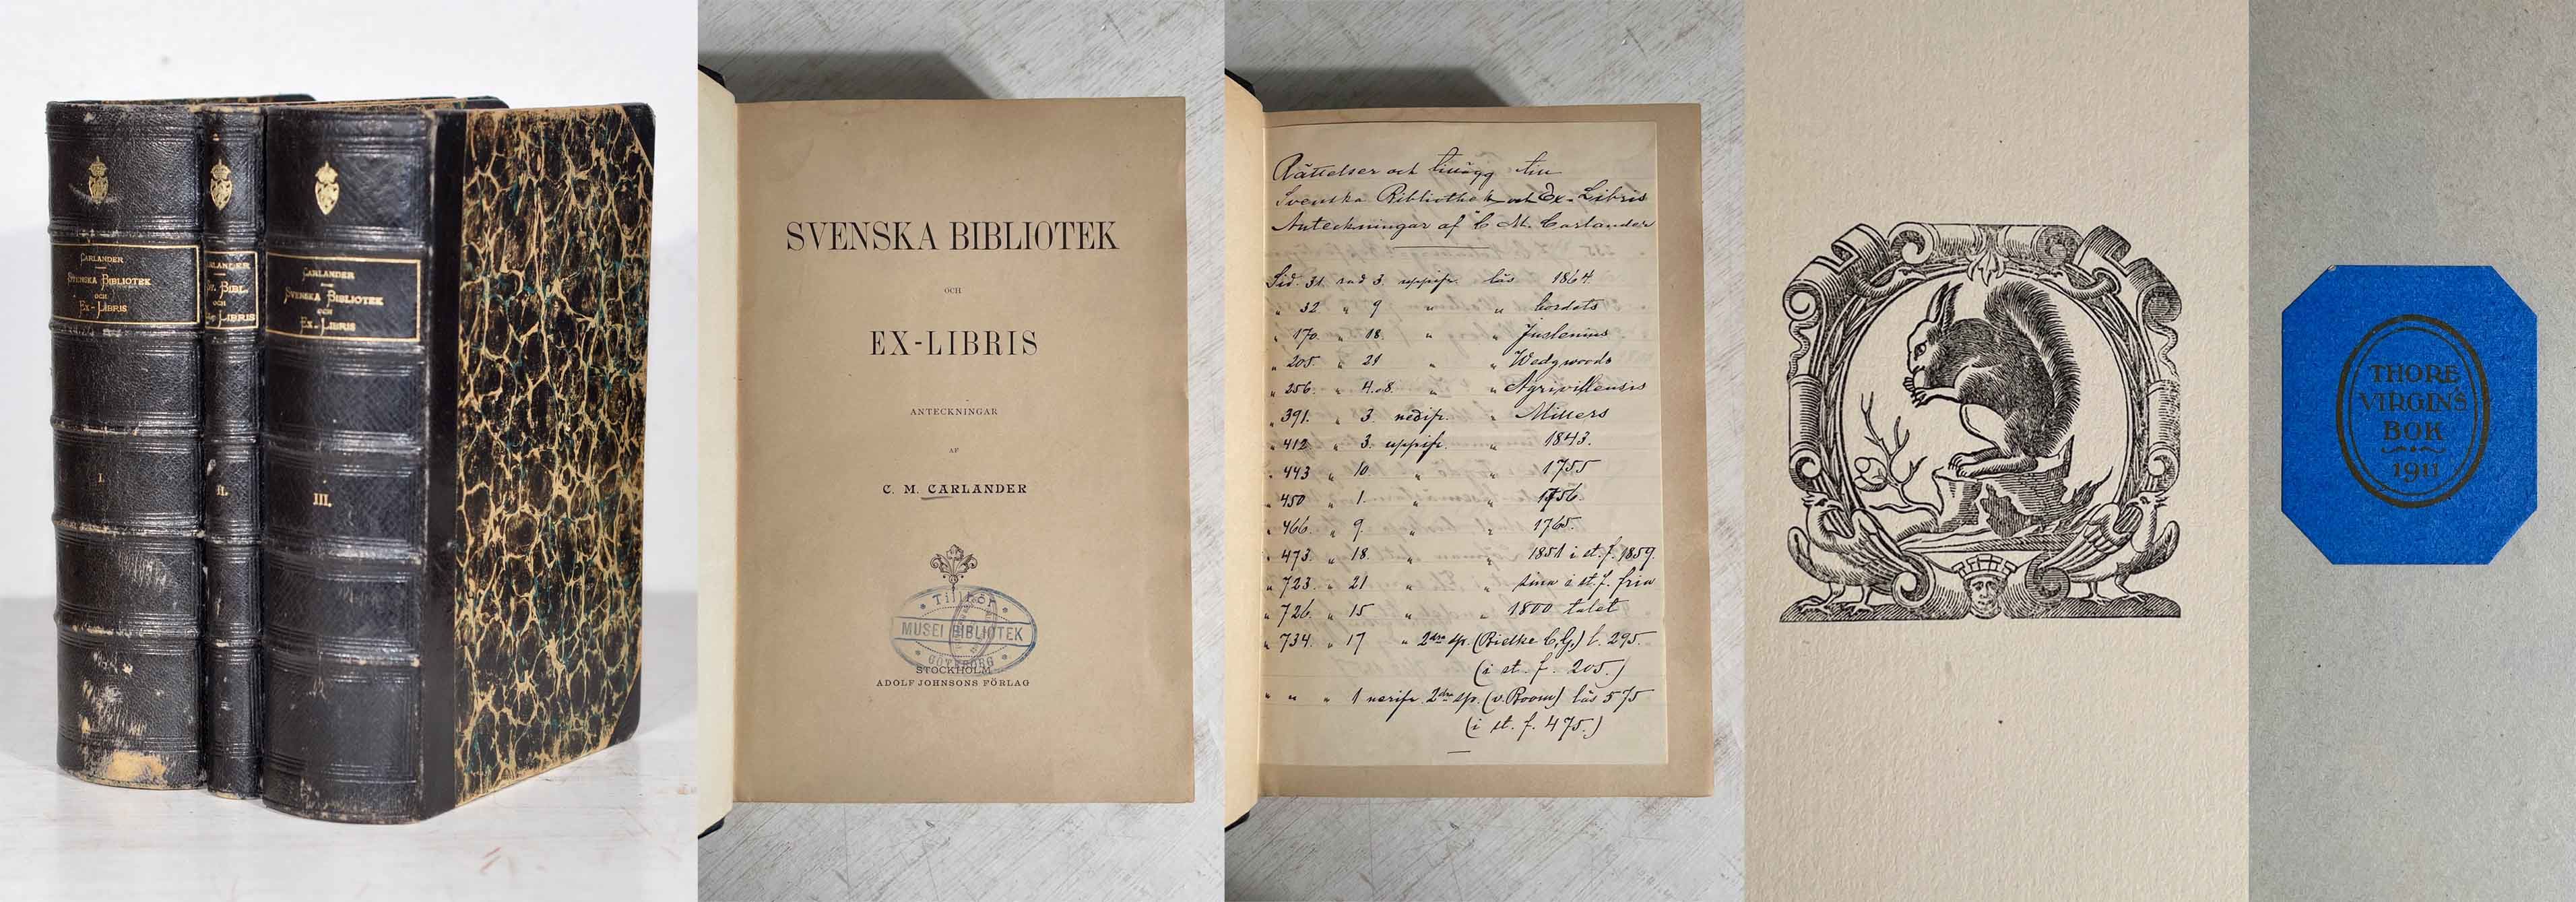 CARLANDER
SVENSKA BIBLIOTEK
OCH
EX-LIBRIS
I.
CARLANDER
SV. BIBL.
OCH
EX-LIBRIS
II.
CARLANDER
SVENSKA BIBLIOTEK
OCH
EX-LIBRIS
III.
SVENSKA BIBLIOTEK
OCH
EX-LIBRIS
ANTECKNINGAR
AF
C. M. CARLANDER
Tillhör
MUSEI BIBLIOTEK
GÖTEBORG
STOCKHOLM
ADOLF JOHNSONS FÖRLAG
Rättelser och tillägg till
Svenska Bibliothek och Ex-Libris
Anteckningar af C. M. Carlander
Sid. 31. rad 3. uppifr. läs 1864
" 32 " 9 " " bordets
" 170. " 18. " " Juslenius
" 205. " 21 " " Wedgwoods
" 256. " 4. o 8. " " Agrivillensis
" 391. " 3. nedifr. " Millers
" 412 " 3. uppifr. " 1843.
" 443 " 10. " " 1755
" 450 " 1. " " 1756.
" 466. " 9. " " 1765.
" 473. " 18. " " 1851 i st. f. 1859.
" 723. " 21 " " sina i st. f. fria
" 726. " 15 " " 1800 talet
" 734. " 17 " 2dra sp. (Bielke C. G.) l. 295.
(i st. f. 205.)
" " " 1 nerifr. 2dra sp. (v. Room) läs 575
(i st. f. 475.)
THORE
VIRGIN'S
BOK
1911